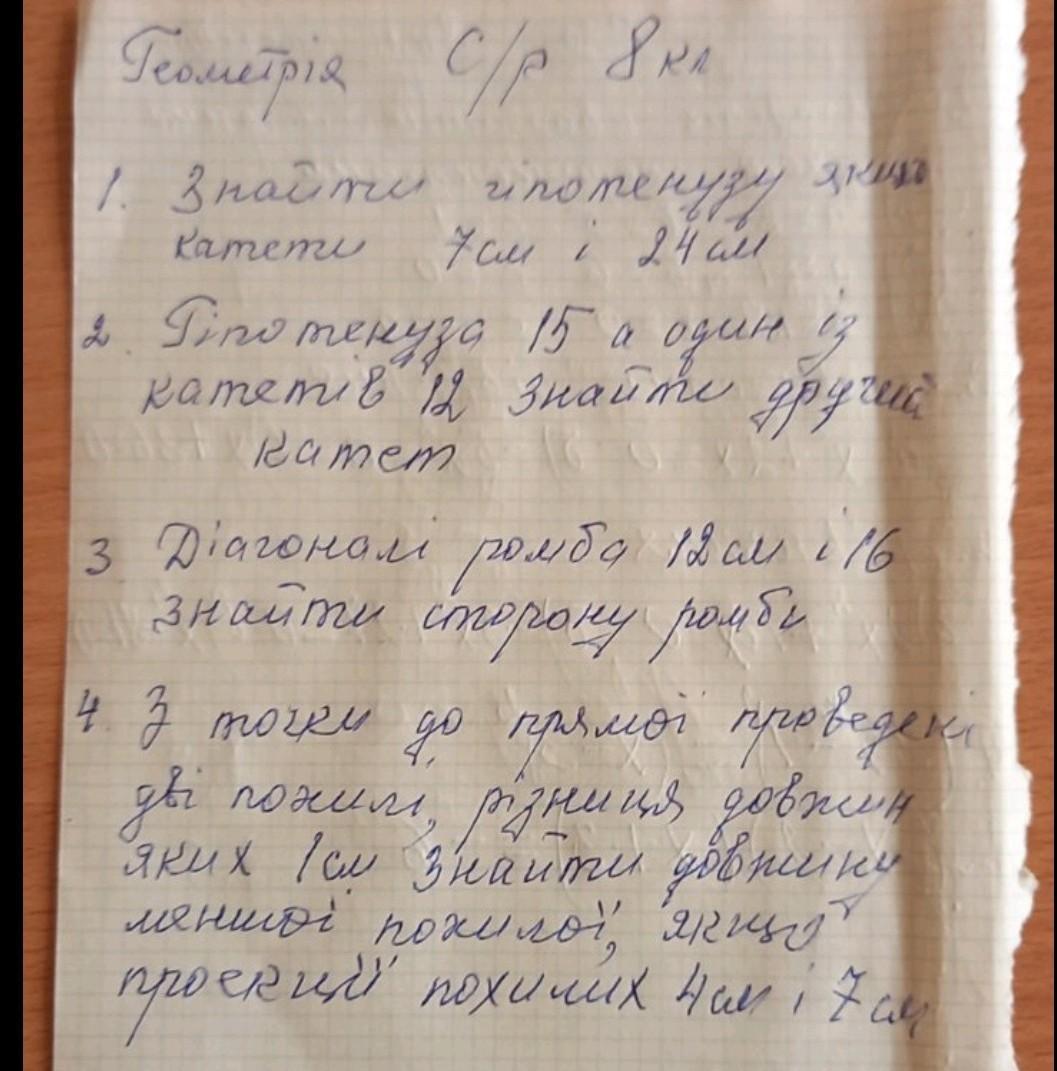 Геометрія С/р 8 кл
1. Знайти гіпотенузу якщо
катети 7см і 24см
2 Гіпотенуза 15 а один із
катетів 12 знайти другий
катет
3 Діагоналі ромба 12см і 16
знайти сторону ромба
4. З точки до прямої проведені
дві похилі, різниця довжин
яких 1см Знайти довжину
меншої похилої, якщо
проекції похилих 4см і 7см